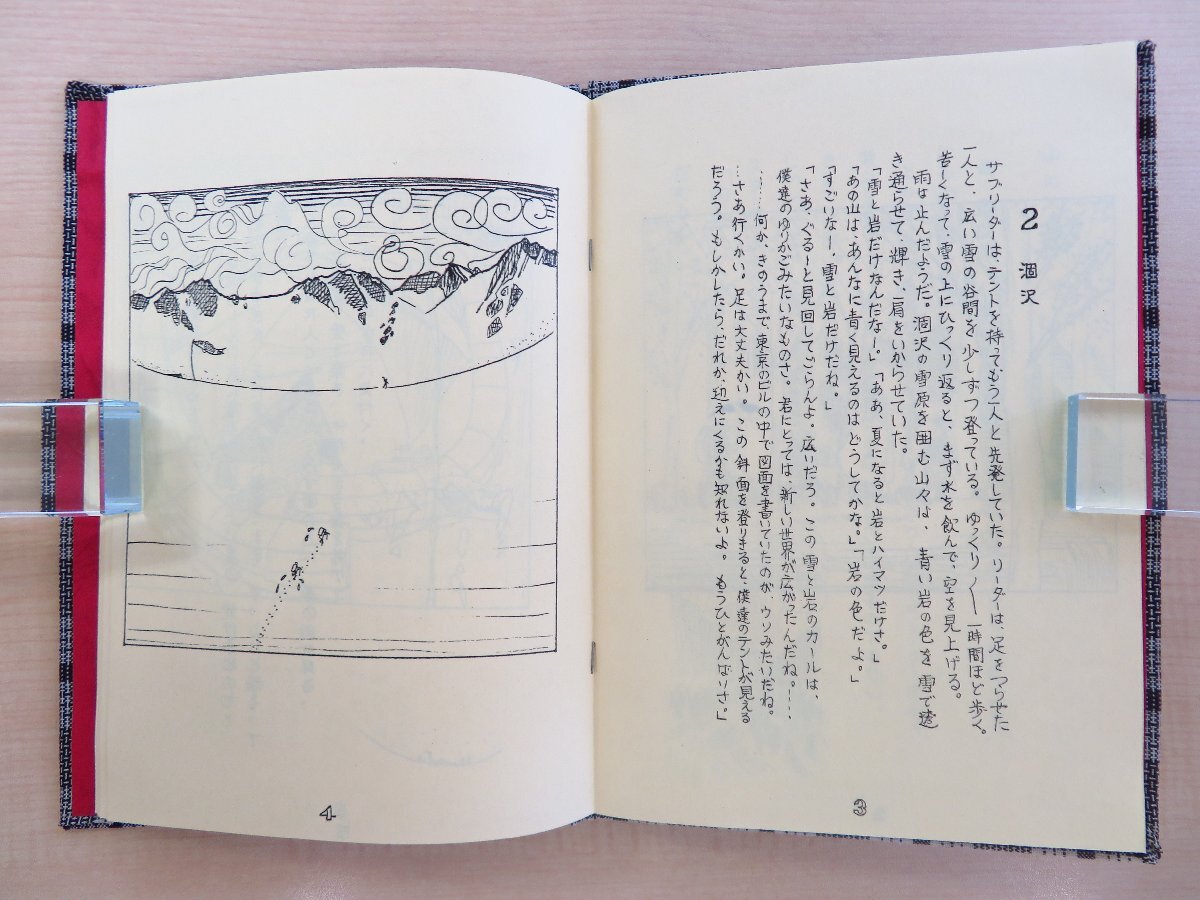 2 涸沢
サブリーダーは、テントを持ってもう一人と先発していた。リーダーは、足をつらせた
一人と、広い雪の谷間を少しずつ登っている。ゆっくりゆっくり一時間ほど歩く。
苦しくなって、雪の上にひっくり返ると、まず水を飲んで、空を見上げる。
雨は止んだようだ。涸沢の雪原を囲む山々は、青い岩の色を雪で透
き通らせて、輝き、肩をいからせていた。
「雪と岩だけなんだなー。」「ああ、夏になると岩とハイマツだけさ。」
「あの山は、あんなに青く見えるのはどうしてかな。」「岩の色だよ。」
「すごいなー、雪と岩だけだね。」
「さあ、ぐるーと見回してごらんよ。広いだろう。この雪と岩のカールは、
僕達のゆりかごみたいなものさ。君にとっては、新しい世界が広がったんだね。……
……何か、きのうまで、東京のビルの中で図面を書いていたのが ウソみたいだね。
…さあ行くかい。足は大丈夫かい。この斜面を登りきると、僕達のテントが見える
だろう。もしかしたら、だれか、迎えにくるかも知れないよ。もうひとがんばりさ。」
3
4